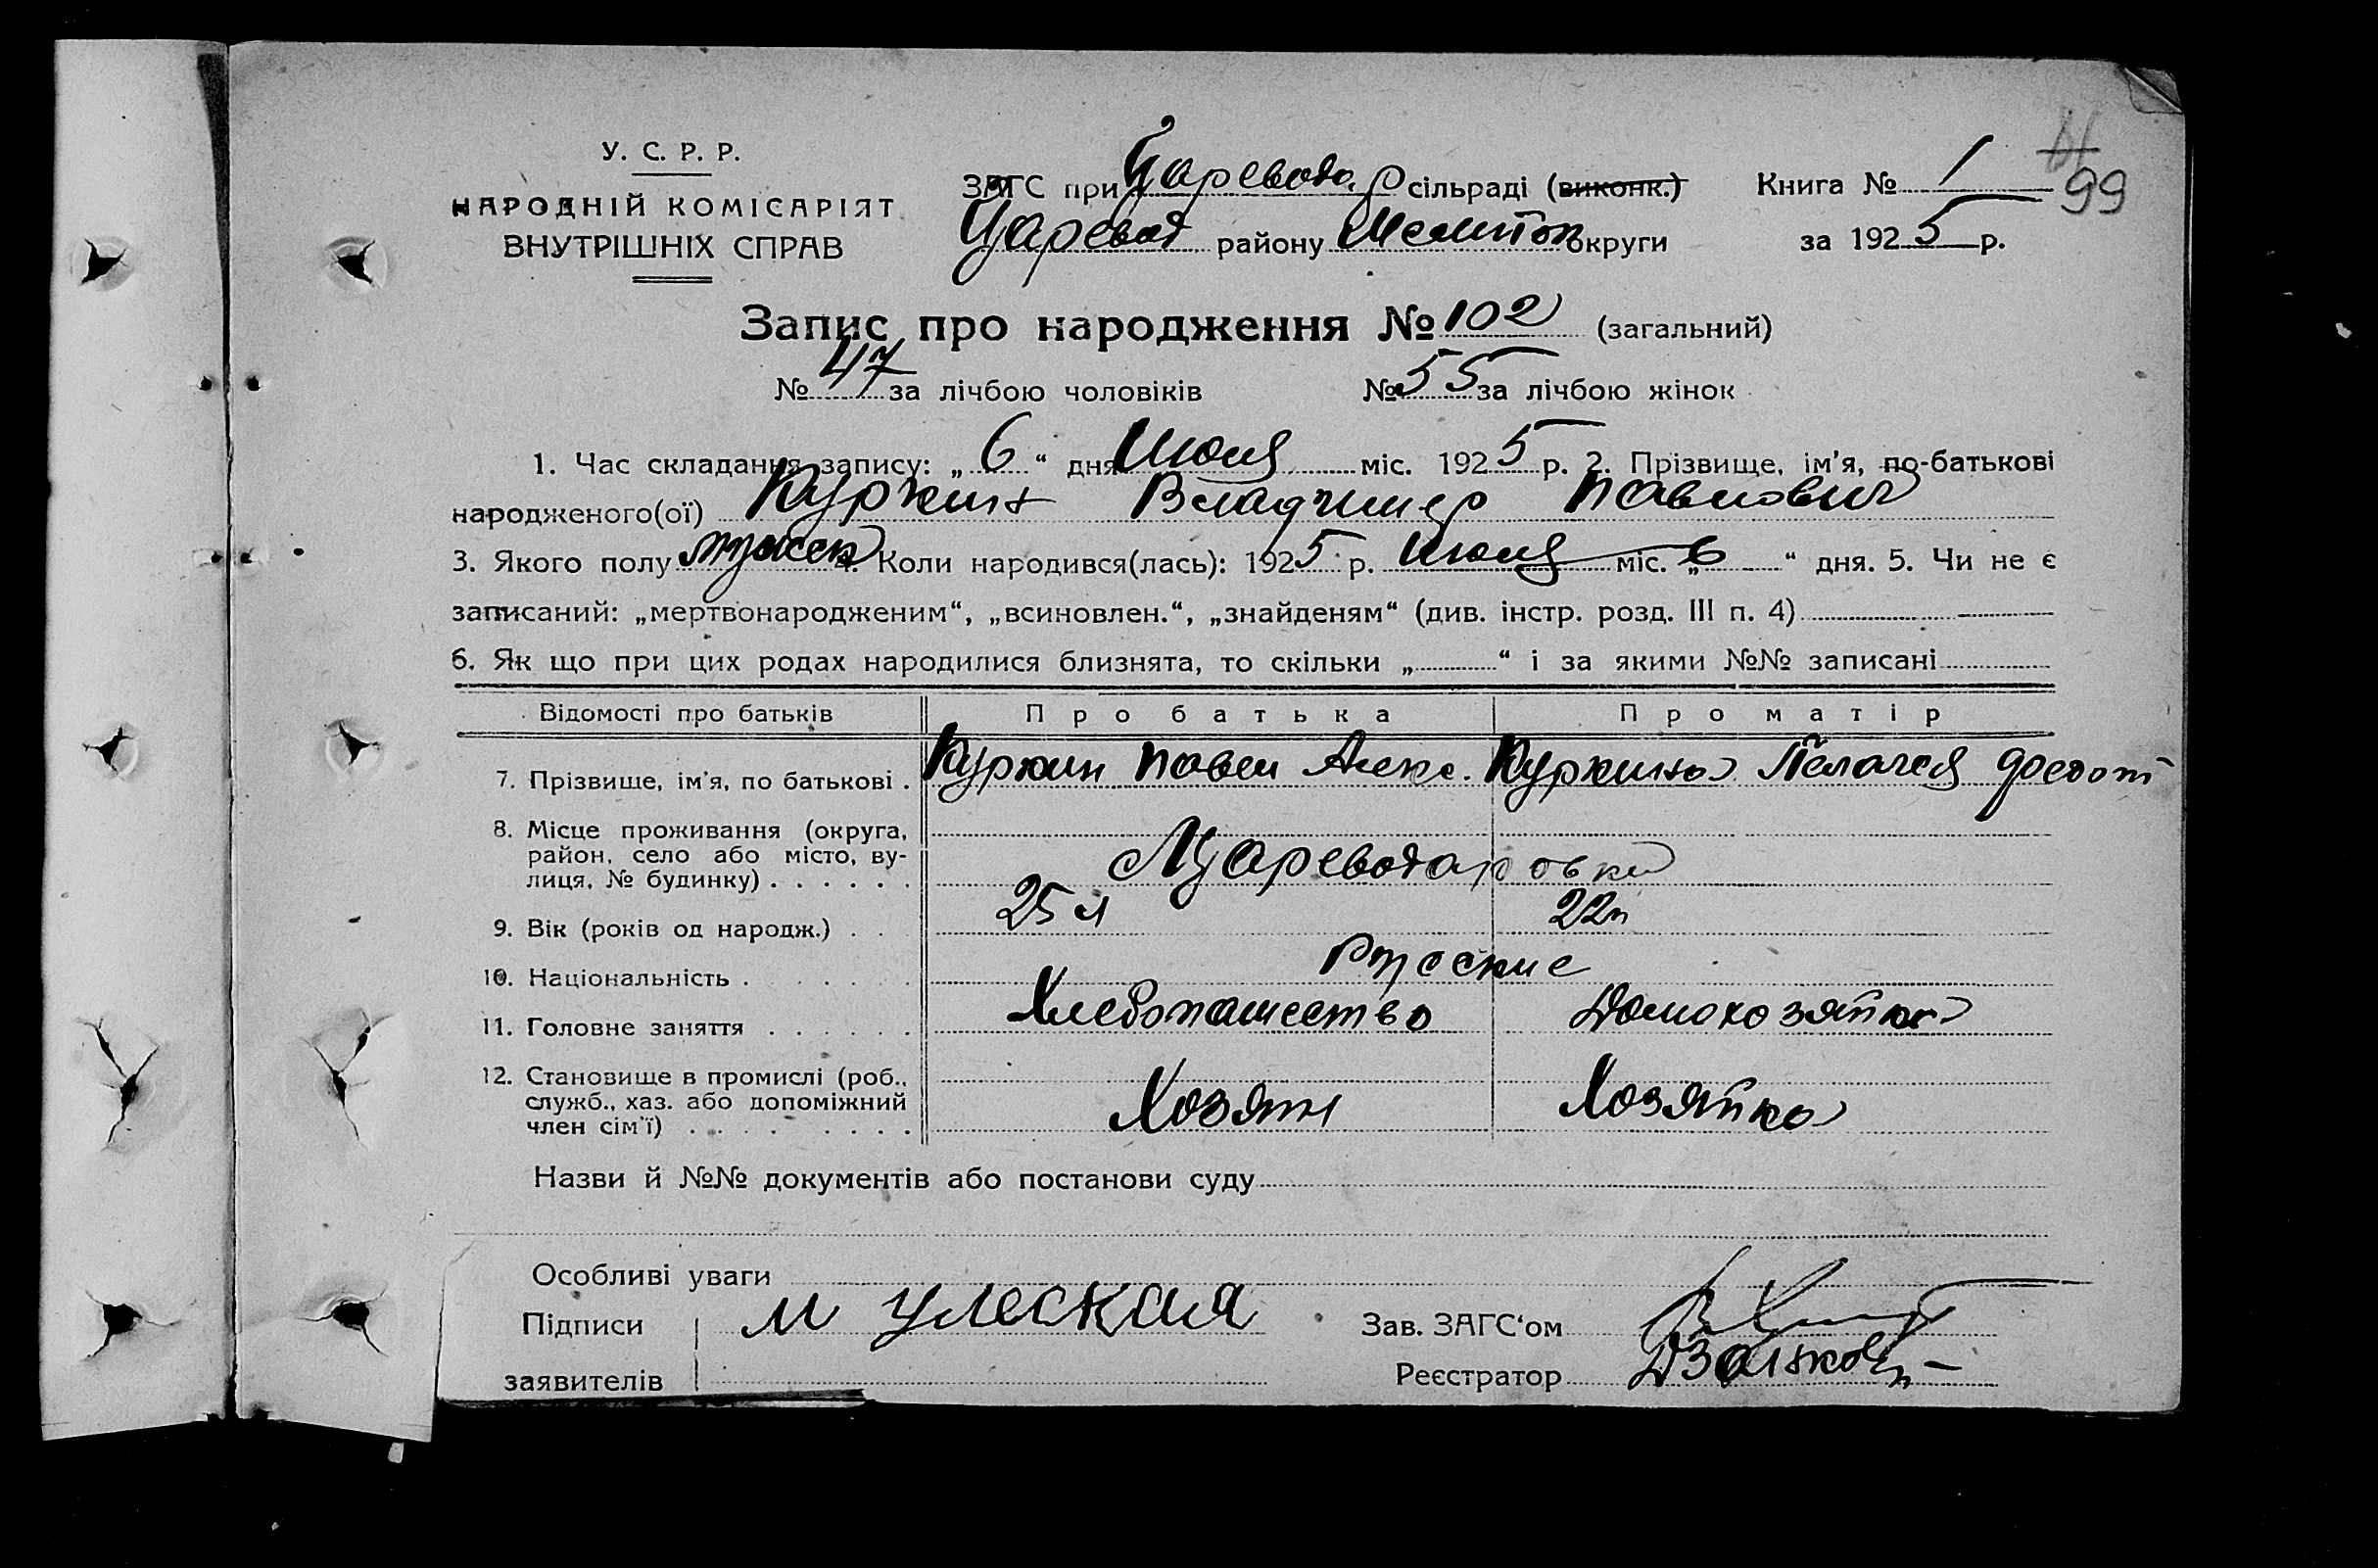 99
У. С. Р. Р.
НАРОДНІЙ КОМІСАРІЯТ
ВНУТРІШНІХ СПРАВ
ЗАГС при Царевода. р сільраді (виконк.) Книга № 1
Царевод району Мелитоп округи за 1925 р.
Запис про народження № 102 (загальний)
№ 47 за лічбою чоловіків № 55 за лічбою жінок
1. Час складання запису: „ 6 “ дня Июля міс. 1925 р. 2. Прізвище, ім'я, по-батькові
народженого(ої) Куркин Владимир Павлович
3. Якого полу мужск 4. Коли народився(лась): 1925 р. Июля міс. „ 6 “ дня. 5. Чи не є
записаний: „мертвонародженим“, „всиновлен.“, „знайденям“ (див. інстр. розд. III п. 4)
6. Як що при цих родах народилися близнята, то скільки „ “ і за якими №№ записані
Відомості про батьків Про батька Про матір
7. Прізвище, ім'я, по батькові . Куркин Павел Алекс. Куркина Пелагея Федот
8. Місце проживання (округа,
район, село або місто, ву-
лиця, № будинку) . . . . . . Цареводаровки
9. Вік (років од народж.) . . 25 л 22 л
10. Національність . . . . . . . Русские
11. Головне заняття . . . . . . Хлебопашество Домохозяйка
12. Становище в промислі (роб.,
служб., хаз. або допоміжний
член сім'ї) . . . . . . . . . Хозяин Хозяйка
Назви й №№ документів або постанови суду
Особливі уваги
Підписи м улеская Зав. ЗАГС‘ом
заявителів Реєстратор